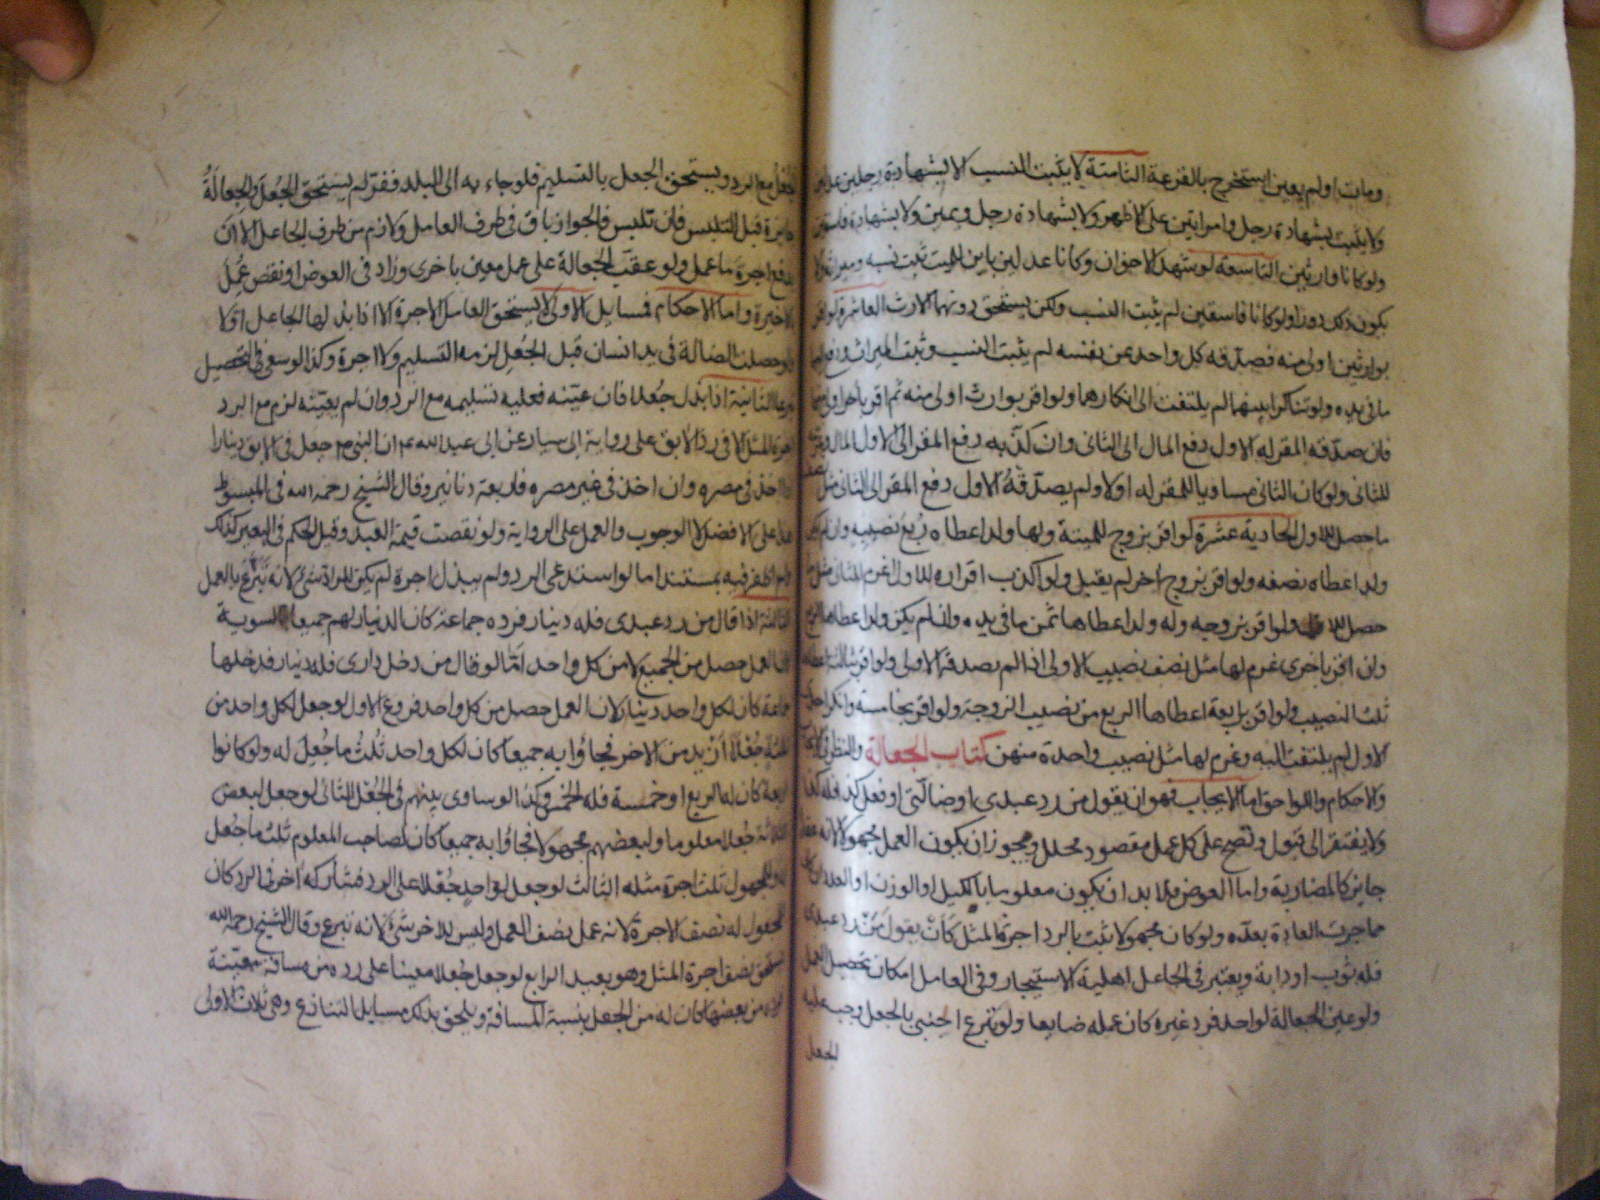 ومات اولم يعين استخرج بالقرعة الثامنة لا يثبت النسب الا بشهادة رجلين عدلين
ولا يثبت بشهادة رجل وامراتين على الاظهر ولا بشهادة رجل ويمين ولا بشهادة فاسقين
ولو كانا وارثين التاسعة لو شهد الاخوان وكانا عدلين بابن للميت ثبت نسبه وميراثه ولا
يكون ذلك دورا ولو كانا فاسقين لم يثبت النسب ولكن يستحق دونهما الارث العاشرة لو اقر
بوارثين اولى منه فصدقه كل واحد عن نفسه لم يثبت النسب وثبت الميراث ودفع اليهما
ما في يده ولو تناكرا بينهما لم يلتفت الى انكارهما ولو اقر بوارث اولى منه ثم اقر باخر اولى منهما
فان صدقه المقر له الاول دفع المال الى الثاني وان كذبه دفع المقر الى الاول المال
للثاني ولو كان الثاني مساويا للمقر له اولا ولم يصدقه الاول دفع المقر الى الثاني مثل
ما حصل للاول الحادية عشرة لو اقر بزوج للميتة ولها ولد اعطاه ربع نصيبه وان لم يكن
ولد اعطاه نصفه ولو اقر بزوج اخر لم يقبل ولو اكذب اقراره للاول اغرم للثاني مثل ما
حصل للاول ولو اقر بزوجه وله ولد اعطاها ثمن ما في يده وان لم يكن ولد اعطاها الربع
وان اقر باخرى غرم لها مثل نصف نصيب الاولى اذا لم يصدقه الاولى ولو اقر بثالثة اعطاها
ثلث النصيب ولو اقر برابعة اعطاها الربع من نصيب الزوجة ولو اقر بخامسة وانكر احدى
الاول لم يلتفت اليه وغرم لها مثل نصيب واحدة منهن كتاب الجعالة والنظر في الايجاب
والاحكام واللواحق اما الايجاب فهو ان يقول من رد عبدي او ضالتي او فعل كذا فله كذا
ولا يفتقر الى قبول وتصح على كل عمل مقصود محلل ويجوز ان يكون العمل مجهولا لانه عقد
جايز كالمضاربة واما العوض فلا بد ان يكون معلوما بالكيل او الوزن او العدد ان كان
مما جرت العادة بعده ولو كان مجهولا ثبت بالرد اجرة المثل كأن يقول من رد عبدي
فله ثوب او دابة ويعتبر في الجاعل اهلية الاستيجار وفي العامل امكان تحصيل العمل
ولو عين الجعالة لواحد فرد غيره كان عمله ضايعا ولو تبرع اجنبي بالجعل وجب عليه
الجعل
الجعل مع الرد ويستحق الجعل بالتسليم فلو جاء به الى البلد ففر لم يستحق الجعل والجعالة
جايزة قبل التلبس فان تلبس فالجواز باق في طرف العامل ولازم من طرف الجاعل الا ان
يدفع اجرة ما عمل ولو عقب الجعالة على عمل معين باخرى وزاد في العوض او نقص عمل
بالاخيرة واما الاحكام فمسايل الاولى لا يستحق العامل الاجرة الا اذا بذلها الجاعل اولا
فلو حصلت الضالة في يد انسان قبل الجعل لزمه التسليم ولا اجرة وكذا لو سعى في التحصيل
تبرعا الثانية اذا بذل جعلا فان عينه فعليه تسليمه مع الرد وان لم يعينه لزم مع الرد
اجرة المثل الا في رد الابق على رواية ابي سيار عن ابي عبد الله ع م ان النبي ص م جعل في الابق دينارا
اذا اخذ في مصره وان اخذ في غير مصره فاربعة دنانير وقال الشيخ رحمه الله في المبسوط
هذا على الافضل لا الوجوب والعمل على الرواية ولو نقصت قيمة العبد وقيل الحكم في البعير كذلك
ولم اظفر فيه بمستند اما لو استدعى الرد ولم يبذل اجرة لم يكن للراد شئ لانه تبرع بالعمل
الثالثة اذا قال من رد عبدي فله دينار فرده جماعة كان الدينار لهم جميعا بالسوية
لان العمل حصل من الجميع لا من كل واحد اما لو قال من دخل داري فله دينار فدخلها
جماعة كان لكل واحد دينار لان العمل حصل من كل واحد فروع الاول لو جعل لكل واحد من
ثلثة جعلا ازيد من الاخر فجاؤا به جميعا كان لكل واحد ثلث ما جعل له ولو كانوا
اربعة كان له الربع او خمسة فله الخمس وكذا لو ساوى بينهم في الجعل الثاني لو جعل لبعض
الثلاثة جعلا معلوما ولبعضهم مجهولا فجاؤا به جميعا كان لصاحب المعلوم ثلث ما جعل
له وللمجهول ثلث اجرة مثله الثالث لو جعل لواحد جعلا على الرد فشاركه اخر في الرد كان
للمجعول له نصف الاجرة لانه عمل نصف العمل وليس للاخر شئ لانه تبرع وقال الشيخ رحمه الله
يستحق نصف اجرة المثل وهو بعيد الرابع لو جعل جعلا معينا على رده من مسافة معينة
فرده من بعضها كان له من الجعل بنسبة المسافة ويلحق بذلك مسايل التنازع وهي ثلاث الاولى